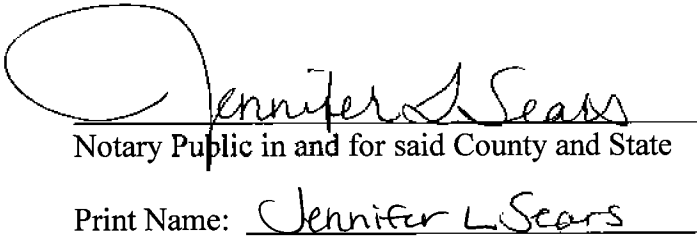 Jennifer L Sears
Notary Public in and for said County and State
Print Name: Jennifer L. Sears